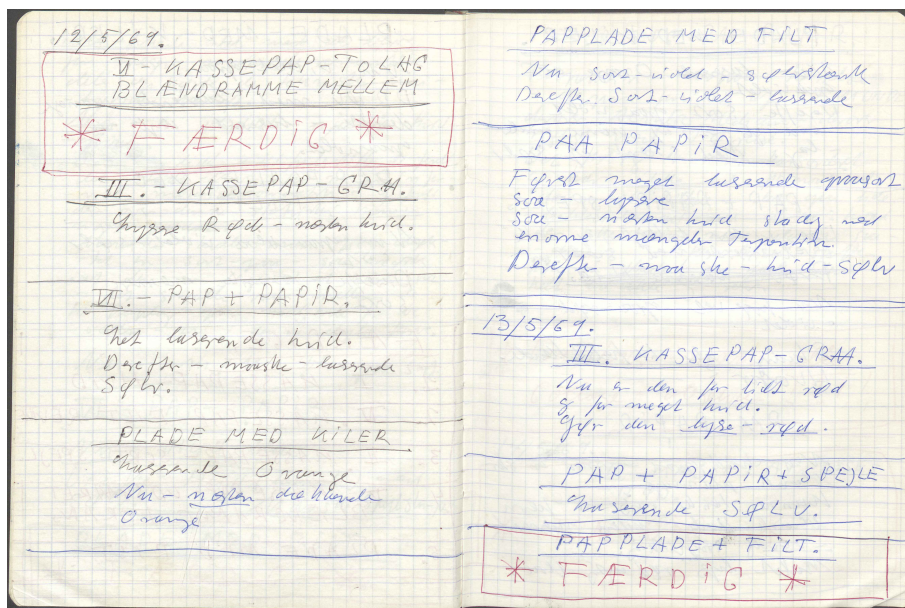 12/5/69.
VI - KASSEPAP - TO LAG
BLÆNDRAMME MELLEM
* FÆRDIG *
III. - KASSEPAP - GRAA.
Lysere Rød - næsten hvid.
VII. - PAP + PAPiR.
Let laserende hvid.
Derefter - maaske - laserende
Sølv.
PLADE MED KiLER
Laserende Orange
Nu - næsten dækkende
Orange
PAPPLADE MED FiLT
Nu sort-violet - sølvstænk
Derefter. Sort-violet - laserende
PAA PAPiR
Først meget laserende
Saa - lysere
Saa - næsten hvid stadig med
enorme mængder Terpentin.
Derefter - maaske - hvid - Sølv
13/5/69.
III. KASSEPAP-GRAA.
Nu er den for lidt rød
og for meget hvid.
Gør den lyse-rød.
PAP + PAPiR + SPEJLE
Laserende SØLV.
PAPPLADE + FiLT.
* FÆRDiG *